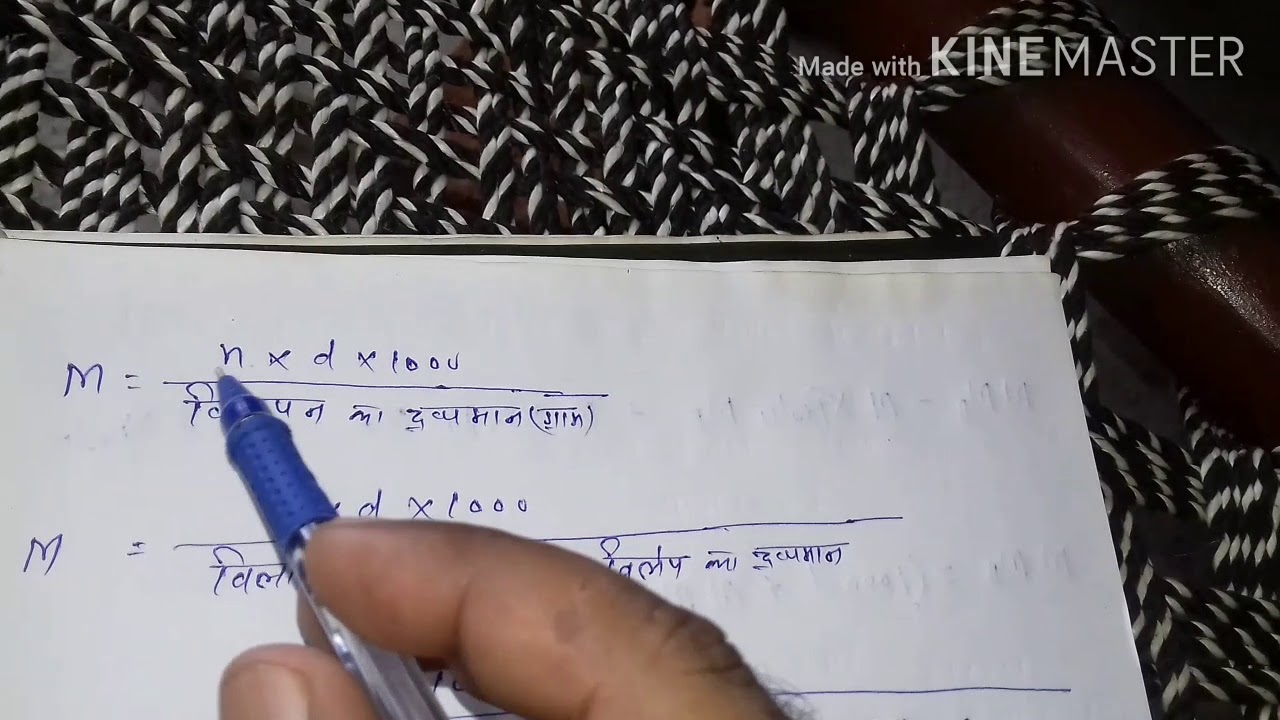 Made with KINEMASTER
M = n × d × 1000
का द्रव्यमान (ग्राम)
M = d × 1000
विलेप का द्रव्यमान